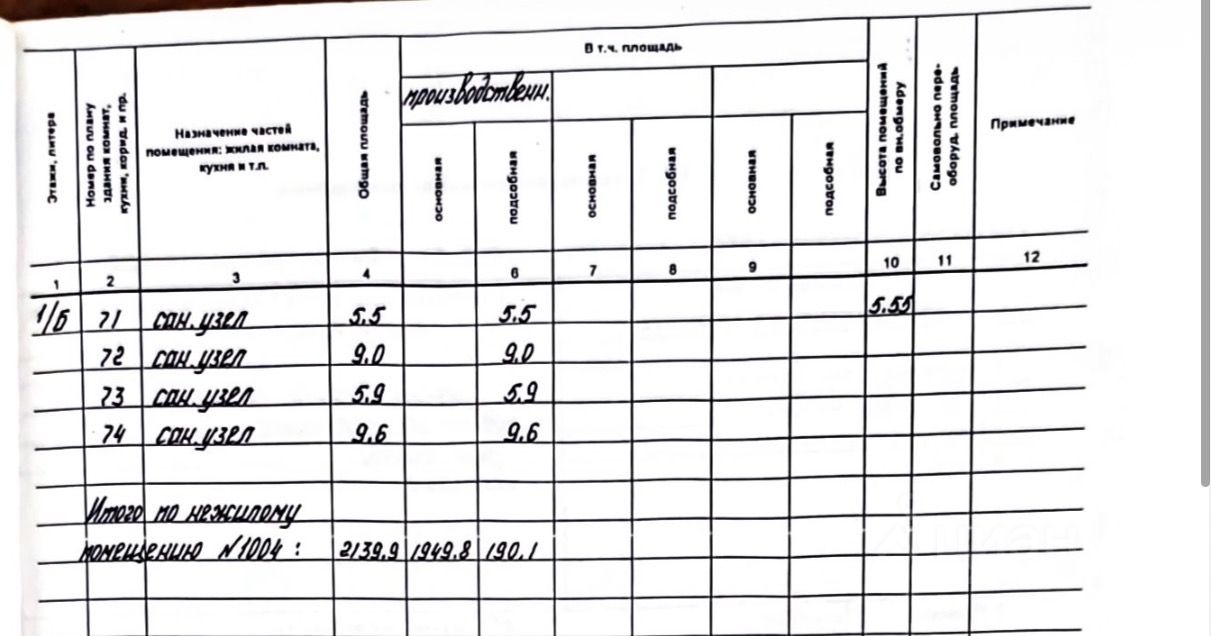 В т.ч. площадь
производственн.
Этажи, литера
Номер по плану
здания комнат,
кухни, корид. и пр.
Назначение частей
помещения: жилая комната,
кухня и т.п.
Общая площадь
основная
подсобная
основная
подсобная
основная
подсобная
Высота помещений
по вн.обмеру
Самовольно пере-
оборуд. площадь
Примечание
1 2 3 4 6 7 8 9 10 11 12
1/Б 71 сан.узел 5.5 5.5 5.55
72 сан.узел 9.0 9.0
73 сан.узел 5.9 5.9
74 сан.узел 9.6 9.6
Итого по нежилому
помещению N1004 : 2139.9 1949.8 190.1